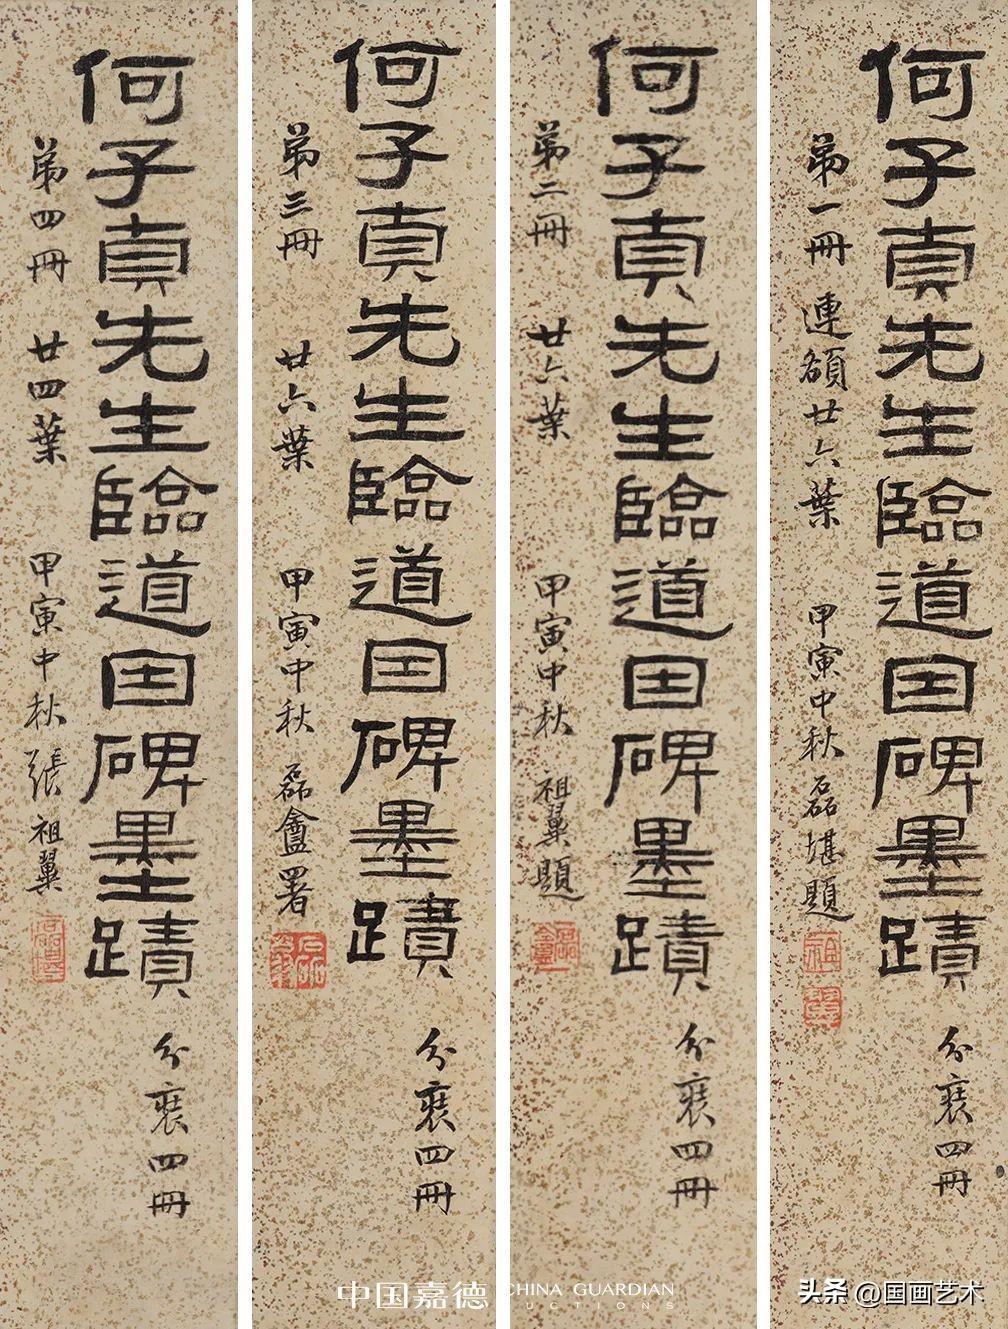 何子真先生臨道因碑墨蹟 分裝四冊
弟一冊 連額廿六葉 甲寅中秋 磊堪題
祖翼
何子真先生臨道因碑墨蹟 分裝四冊
弟二冊 廿六葉 甲寅中秋 祖翼題
何子真先生臨道因碑墨蹟 分裝四冊
弟三冊 廿六葉 甲寅中秋 磊盦署
何子真先生臨道因碑墨蹟 分裝四冊
弟四冊 廿四葉 甲寅中秋 張祖翼
中国嘉德 CHINA GUARDIAN
AUCTIONS
头条 @国画艺术